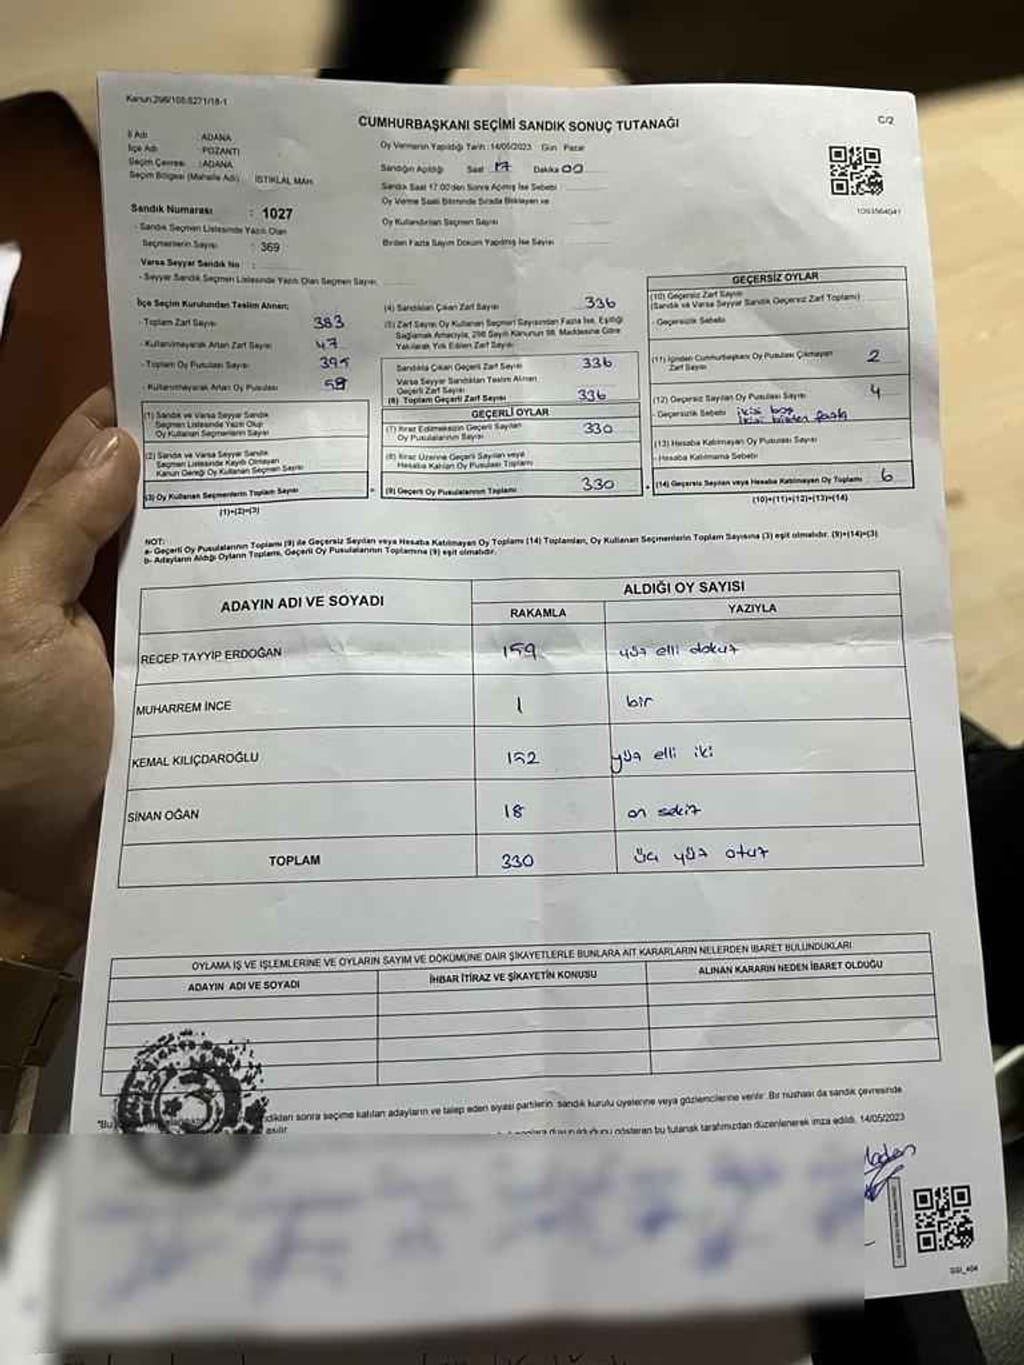 Kanun:298/105.5271/18-1
CUMHURBAŞKANI SEÇİMİ SANDIK SONUÇ TUTANAĞI
C/2
İl Adı : ADANA
İlçe Adı : POZANTI
Seçim Çevresi : ADANA
Seçim Bölgesi (Mahalle Adı) : İSTİKLAL MAH.
Sandık Numarası : 1027
- Sandık Seçmen Listesinde Yazılı Olan
Seçmenlerin Sayısı : 369
Varsa Seyyar Sandık No :
- Seyyar Sandık Seçmen Listesinde Yazılı Olan Seçmen Sayısı
Oy Vermenin Yapıldığı Tarih : 14/05/2023 Gün : Pazar
Sandığın Açıldığı Saat 17 Dakika 00
Sandık Saat 17.00'den Sonra Açılmış İse Sebebi
Oy Verme Saati Bitiminde Sırada Bekleyen ve
Oy Kullandırılan Seçmen Sayısı
Birden Fazla Sayım Döküm Yapılmış İse Sayısı
İlçe Seçim Kurulundan Teslim Alınan;
- Toplam Zarf Sayısı 383
- Kullanılmayarak Artan Zarf Sayısı 47
- Toplam Oy Pusulası Sayısı 395
- Kullanılmayarak Artan Oy Pusulası
(1) Sandık ve Varsa Seyyar Sandık
Seçmen Listesinde Yazılı Olup
Oy Kullanan Seçmenlerin Sayısı
(2) Sandık ve Varsa Seyyar Sandık
Seçmen Listesinde Kayıtlı Olmayan
Kanun Gereği Oy Kullanan Seçmen Sayısı
(3) Oy Kullanan Seçmenlerin Toplam Sayısı
(1)+(2)=(3)
(4) Sandıktan Çıkan Zarf Sayısı 336
(5) Zarf Sayısı Oy Kullanan Seçmen Sayısından Fazla İse, Eşitliği
Sağlamak Amacıyla, 298 Sayılı Kanunun 98. Maddesine Göre
Yakılarak Yok Edilen Zarf Sayısı
Sandıkta Çıkan Geçerli Zarf Sayısı 336
Varsa Seyyar Sandıktan Teslim Alınan
Geçerli Zarf Sayısı
(6) Toplam Geçerli Zarf Sayısı 336
GEÇERLİ OYLAR
(7) İtiraz Edilmeksizin Geçerli Sayılan
Oy Pusulalarının Sayısı 330
(8) İtiraz Üzerine Geçerli Sayılan veya
Hesaba Katılan Oy Pusulası Toplamı
(9) Geçerli Oy Pusulalarının Toplamı 330
GEÇERSİZ OYLAR
(10) Geçersiz Zarf Sayısı
(Sandık ve Varsa Seyyar Sandık Geçersiz Zarf Toplamı)
- Geçersizlik Sebebi
(11) İçinden Cumhurbaşkanı Oy Pusulası Çıkmayan
Zarf Sayısı 2
(12) Geçersiz Sayılan Oy Pusulası Sayısı 4
- Geçersizlik Sebebi ikisi boş
ikisi birden fazla
(13) Hesaba Katılmayan Oy Pusulası Sayısı
- Hesaba Katılmama Sebebi
(14) Geçersiz Sayılan veya Hesaba Katılmayan Oy Toplamı 6
(10)+(11)+(12)+(13)=(14)
NOT:
a- Geçerli Oy Pusulalarının Toplamı (9) ile Geçersiz Sayılan veya Hesaba Katılmayan Oy Toplamı (14) Toplamları, Oy Kullanan Seçmenlerin Toplam Sayısına (3) eşit olmalıdır. (9)+(14)=(3)
b- Adayların Aldığı Oyların Toplamı, Geçerli Oy Pusulalarının Toplamına (9) eşit olmalıdır.
ADAYIN ADI VE SOYADI
ALDIĞI OY SAYISI
RAKAMLA YAZIYLA
RECEP TAYYİP ERDOĞAN 159 yüz elli dokuz
MUHARREM İNCE 1 bir
KEMAL KILIÇDAROĞLU 152 yüz elli iki
SİNAN OĞAN 18 on sekiz
TOPLAM 330 üç yüz otuz
OYLAMA İŞ VE İŞLEMLERİNE VE OYLARIN SAYIM VE DÖKÜMÜNE DAİR ŞİKAYETLERLE BUNLARA AİT KARARLARIN NELERDEN İBARET BULUNDUKLARI
ADAYIN ADI VE SOYADI
İHBAR İTİRAZ VE ŞİKAYETİN KONUSU
ALINAN KARARIN NEDEN İBARET OLDUĞU
"Bu
sonra seçime katılan adayların ve talep eden siyasi partilerin sandık kurulu üyelerine veya gözlemcilerine verilir. Bir nüshası da sandık çevresinde
asılır.
gösteren bu tutanak tarafımızdan düzenlenerek imza edildi. 14/05/2023